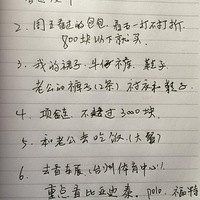 2. 周五看过的包包. 看五一打不打折.
800块以下就买.
3. 我的裙子. 牛仔裤. 鞋子.
老公的裤子(2条) 衬衣和鞋子.
4. 项链. 不超过3000块.
5. 和老公去吃饭. (大餐)
6. 去看车展. (台州体育中心).
重点看比亚迪秦. polo. 福特